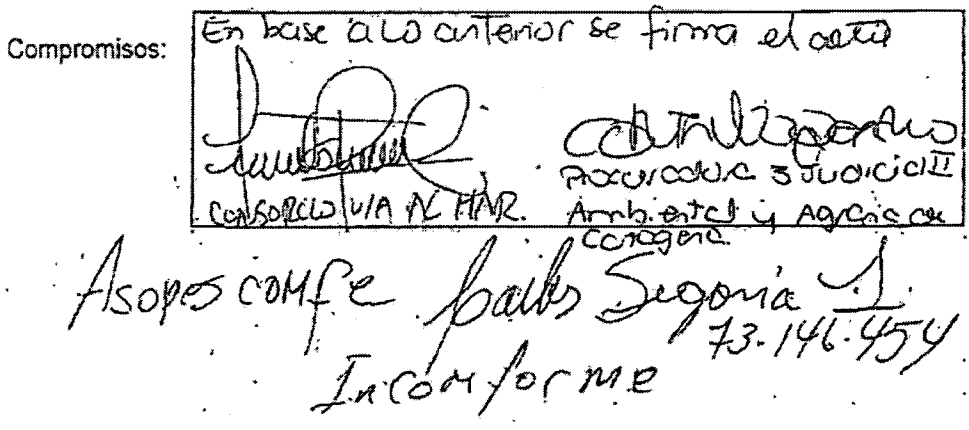 Compromisos:
En base a lo anterior se firma el acta
CONSORCIO VIA AL MAR.
Procuradora 3 Judicial II
Ambiental y Agraria de
Cartagena
Asopescomfe Carlos Segovia J.
73.146.454
Incomforme